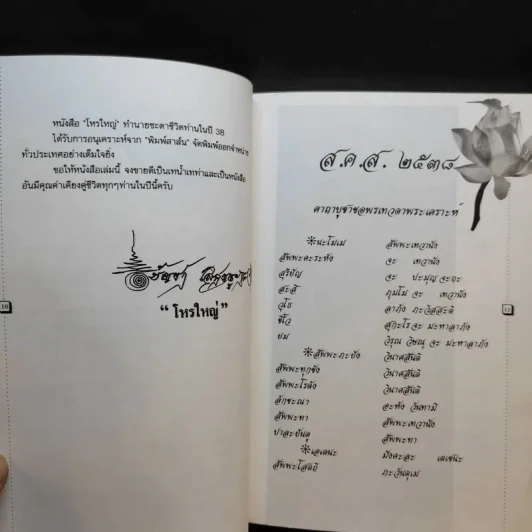 หนังสือ "โหรใหญ่" ทำนายชะตาชีวิตท่านในปี 38
ได้รับการอนุเคราะห์จาก "พิมพ์สาส์น" จัดพิมพ์ออกจำหน่าย
ทั่วประเทศอย่างเต็มใจยิ่ง
ขอให้หนังสือเล่มนี้ จงขายดีเป็นเทน้ำเทท่าและเป็นหนังสือ
อันมีคุณค่าเคียงคู่ชีวิตทุกๆท่านในปีนี้ครับ
" โหรใหญ่ "
10
ส.ค.ส. ๒๕๓๘
คาถาบูชาขอพรเทวดาพระเคราะห์
*นะโมเม สัพพะเทวานัง
สัพพะคะระหัง จะ เทวานัง
สุริยัญ จะ ปะมุญจะถะ
สะสี ภุมโม จะ เทวานัง
วุโธ ลาภัง ภะวิสสะติ
ชีโว สุกะโร จะ มะหาลาภัง
*สัพพะภะยัง วินาศสันติ
สัพพะทุกขัง วินาศสันติ
สัพพะโรคัง วินาศสันติ
ลักขะณา อะหัง วันทามิ
สัพพะทา สัพพะเทวานัง
ปาละยันตุ สัพพะทา
*เอเตนะ มังคะละ เตเชนะ
สัพพะโสตถี ภะวันตุเม
11